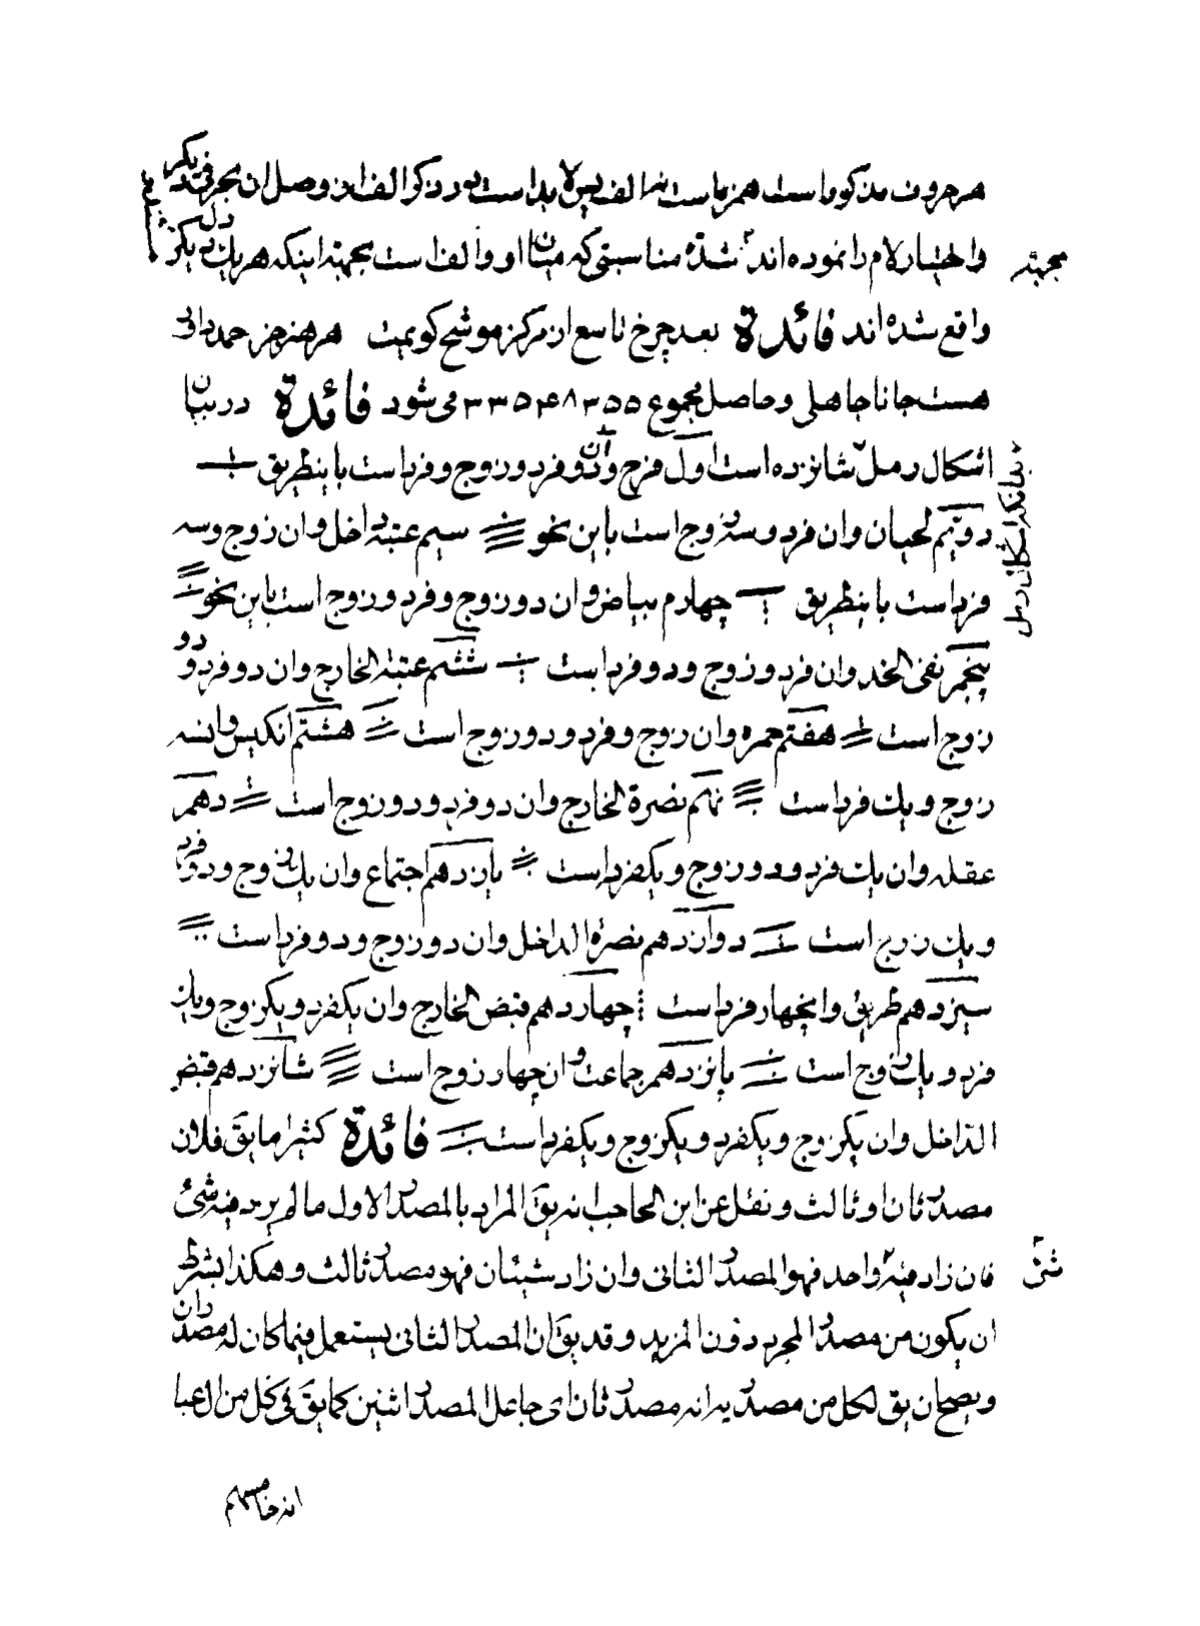 هر حروف مذکور است همزه است نه الف پس لابد است بودن ذکر الف او وصل ان بحرف دیگر
و اختیار لام را نموده اند شده مناسبتی که میان او و الف است بجهة اینکه هر یك دل دیگر
بجهة
واقع شده اند فائدة بعد چرخ تاسع از مرکز موشح کویمت هر هنر جز حمد دانی
هست جانا جاهلی و حاصل مجموع ۳۳۵۴۸۳۵۵ می شود فائدة در بیان
اشکال رمل شانزده است اول فرح وان دو فرد و زوج و فرد است باینطریق
بدانکه اشکال رمل
دویم لحیان وان فرد و سه زوج است باین نحو سیم عتبة داخل وان زوج وسه
فرد است باینطریق چهارم بیاض وان دو زوج و فرد و زوج است باین نحو
پنجم نقی الخد وان فرد و زوج و دو فرد است ششم عتبة الخارج وان دو فرد و دو
زوج است هفتم حمره وان زوج و فرد و دو زوج است هشتم انکیس وان سه
زوج و یك فرد است نهم نصرة الخارج وان دو فرد و دو زوج است دهم
عقله وان یك فرد و دو زوج و یکفرد است یازدهم اجتماع وان یك زوج و دو فرد
و یك زوج است دوازدهم نصرة الداخل وان دو زوج و دو فرد است
سیزدهم طریق وان چهار فرد است چهاردهم قبض الخارج وان یکفرد و یکزوج و یك
فرد و یك زوج است پانزدهم جماعت وان چهار زوج است شانزدهم قبض
الداخل وان یکزوج و یکفرد و یکزوج و یکفرد است فائدة کثیرا ما یق فلان
مصدر ثان او ثالث و نقل عن ابن الحاجب انه یق المراد بالمصدر الاول ما لم یزد فیه شئ
فان زاد فیه واحد فهو المصدر الثانی وان زاد شیئان فهو مصدر ثالث وهکذا بشرط
شئ
ان یکون من مصدر المجرد دون المزید و قد یق ان المصدر الثانی یستعمل فیما کان له مصدران
ویصح ان یق لکل من مصدریه انه مصدر ثان ای جاعل المصدر اثنین کما یق فی کل من العبا